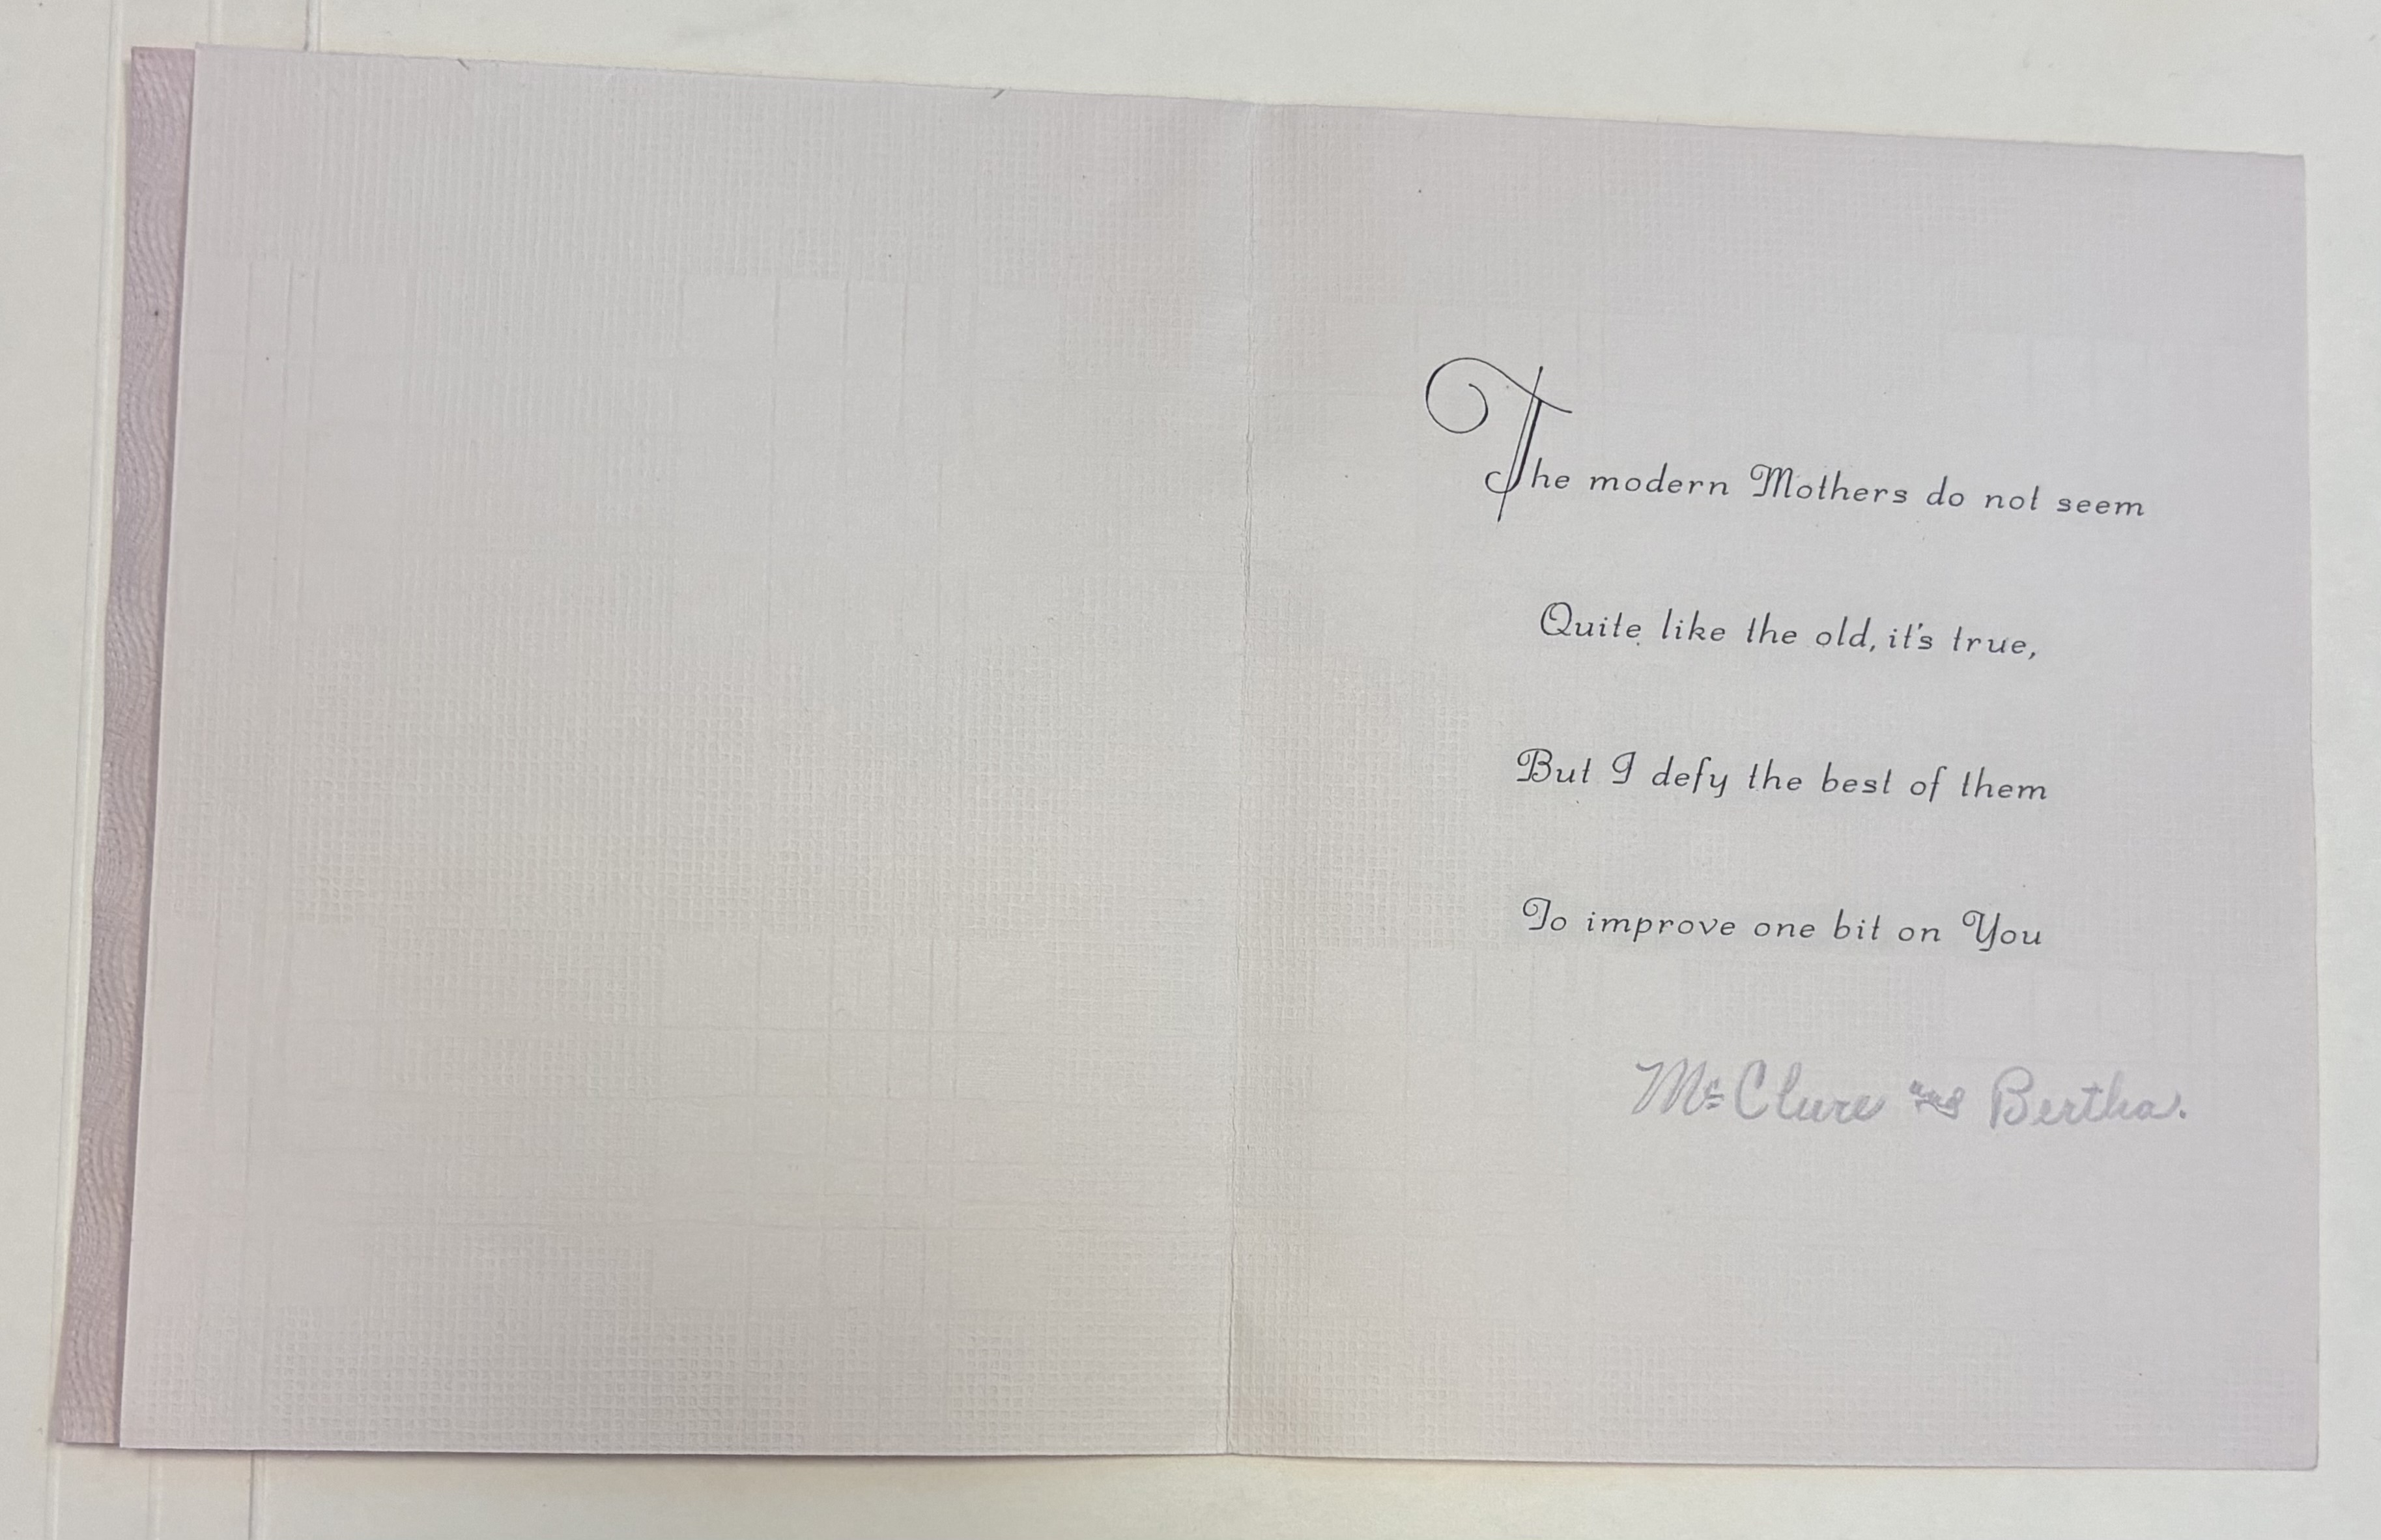 The modern Mothers do not seem
Quite like the old, it's true,
But I defy the best of them
To improve one bit on You
McClure and Bertha.